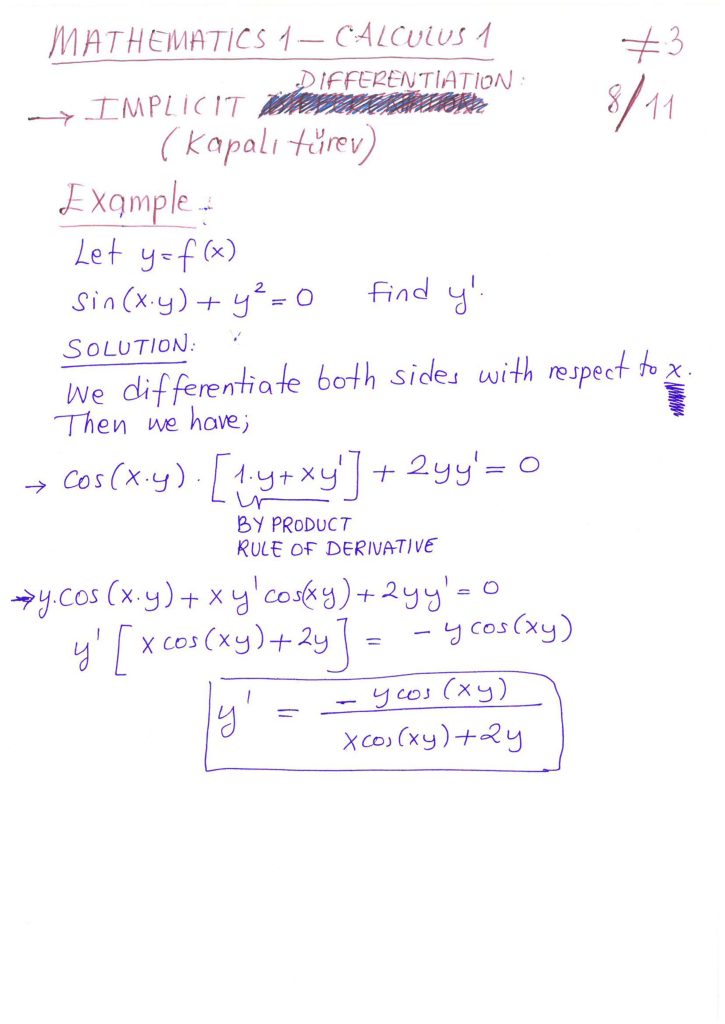 MATHEMATICS 1 – CALCULUS 1
≠3
8/11
→ IMPLICIT DIFFERENTIATION:
(Kapalı türev)
Example:
Let y=f(x)
sin(x·y) + y² = 0 Find y'.
SOLUTION:
We differentiate both sides with respect to x.
Then we have;
→ cos(x·y) · [1·y + xy'] + 2yy' = 0
BY PRODUCT
RULE OF DERIVATIVE
→ y.cos(x·y) + xy' cos(xy) + 2yy' = 0
y' [x cos(xy) + 2y] = – y cos(xy)
y' = – y cos(xy) / x cos(xy) + 2y